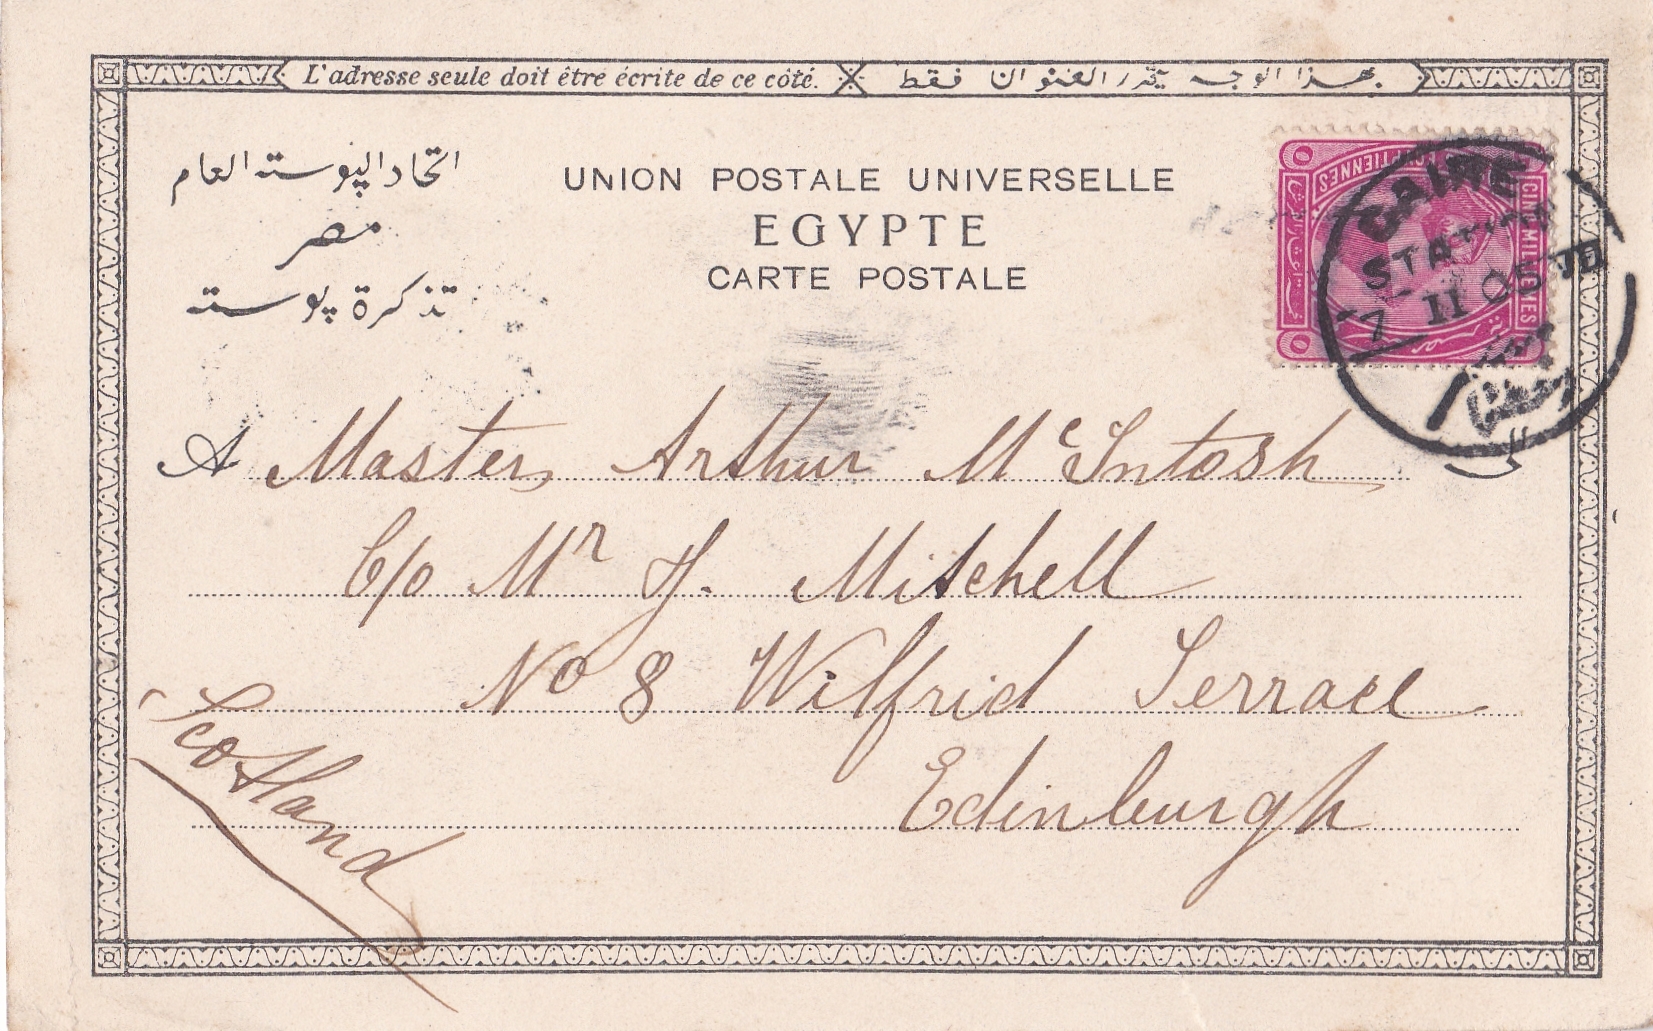 L'adresse seule doit être écrite de ce côté.
بهذا الوجه يحرر العنوان فقط
اتحاد البوسته العام
مصر
تذكرة بوسته
UNION POSTALE UNIVERSELLE
EGYPTE
CARTE POSTALE
CINQ MILLIEMES
CAIRE
STATION
-7 11 05
A Master Arthur McIntosh
الى
C/o Mr J. Mitchell
No 8 Wilfrid Terrace
Edinburgh
Scotland